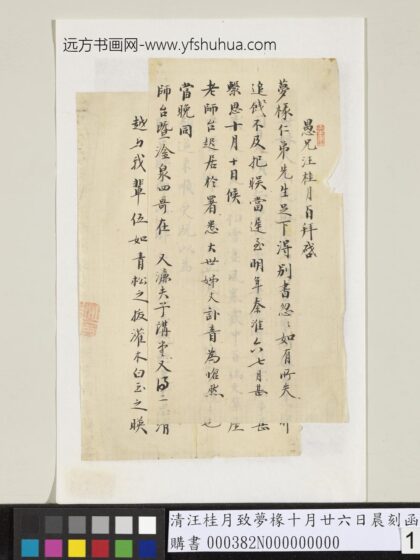 远方书画网-www.yfshuhua.com
愚兄汪桂月百拜啓
夢椽仁弟先生足下得別書忽忽如有所失
追餞不及把䀹當遲至明年秦淮六七月
繫思十月十日候
老師台起居於署悉大世婦人訃音為愴然
當晚同
師台暨淦泉四哥在 又濂夫子講堂又
越與我輩伍如青松之拔灌木白玉之映
清汪桂月致夢椽十月廿六日晨刻函
購書 000382N000000000
1